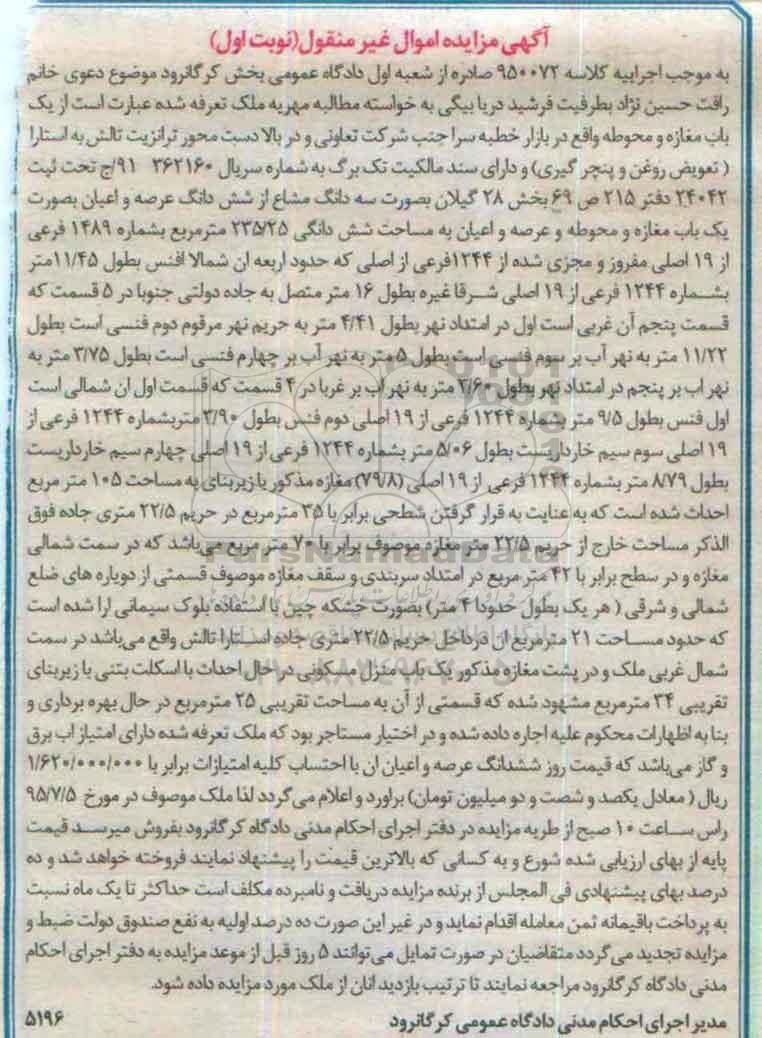 آگهی مزایده اموال غیر منقول(نوبت اول)
به موجب اجراییه کلاسه ۹۵۰۰۷۲ صادره از شعبه اول دادگاه عمومی بخش کرگانرود موضوع دعوی خانم
رافت حسین نژاد بطرفیت فرشید دریا بیگی به خواسته مطالبه مهریه ملک تعرفه شده عبارت است از یک
باب مغازه و محوطه واقع در بازار خطبه سرا جنب شرکت تعاونی و در بالا دست محور ترانزیت تالش به استارا
( تعویض روغن و پنچر گیری) و دارای سند مالکیت تک برگ به شماره سریال ۳۶۲۱۶۰ ۹۱/ج تحت ثبت
۲۴۰۴۲ دفتر ۲۱۵ ص ۶۹ بخش ۲۸ گیلان بصورت سه دانگ مشاع از شش دانگ عرصه و اعیان بصورت
یک باب مغازه و محوطه و عرصه و اعیان به مساحت شش دانگی ۲۳۵/۲۵ مترمربع بشماره ۱۴۸۹ فرعی
از ۱۹ اصلی مفروز و مجزی شده از ۱۲۴۴فرعی از اصلی که حدود اربعه ان شمالا افنس بطول ۱۱/۴۵متر
بشماره ۱۲۴۴ فرعی از ۱۹ اصلی شرقا غیره بطول ۱۶ متر متصل به جاده دولتی جنوبا در ۵ قسمت که
قسمت پنجم آن غربی است اول در امتداد نهر بطول ۴/۴۱ متر به حریم نهر مرقوم دوم فنسی است بطول
۱۱/۲۲ متر به نهر آب بر سوم فنسی است بطول ۵ متر به نهر آب بر چهارم فنسی است بطول ۳/۷۵ متر به
نهر اب بر پنجم در امتداد نهر بطول ۲/۶۰ متر به نهر اب بر غربا در ۴ قسمت که قسمت اول ان شمالی است
اول فنس بطول ۹/۵ متر بشماره ۱۲۴۴ فرعی از ۱۹ اصلی دوم فنس بطول ۲/۹۰ متربشماره ۱۲۴۴ فرعی از
۱۹ اصلی سوم سیم خارداریست بطول ۵/۰۶ متر بشماره ۱۲۴۴ فرعی از ۱۹ اصلی چهارم سیم خارداریست
بطول ۸/۷۹ متر بشماره ۱۲۴۴ فرعی از ۱۹ اصلی (۷۹/۸) مغازه مذکور با زیربنای به مساحت ۱۰۵ متر مربع
احداث شده است که به عنایت به قرار گرفتن شطحی برابر با ۳۵ مترمربع در حریم ۲۲/۵ متری جاده فوق
الذکر مساحت خارج از حریم ۲۲/۵ متر مغازه موصوف برابر با ۷۰ متر مربع میباشد که در سمت شمالی
مغازه و در سطح برابر با ۴۲ متر مربع در امتداد سربندی و سقف مغازه موصوف قسمتی از دوباره های ضلع
شمالی و شرقی ( هر یک بطول خدودا ۴ متر) بصورت خشکه چین با استفاده بلوک سیمانی ارا شده است
که حدود مساحت ۲۱ مترمربع ان درداخل حریم ۲۲/۵ متری جاده استارا تالش واقع می‌باشد در سمت
شمال غربی ملک و در پشت مغازه مذکور یک باب منزل مسکونی در حال احداث با اسکلت بتنی با زیربنای
تقریبی ۳۴ مترمربع مشهود شده که قسمتی از آن به مساحت تقریبی ۲۵ مترمربع در حال بهره برداری و
بنا به اظهارات محکوم علیه اجاره داده شده و در اختیار مستاجر بود که ملک تعرفه شده دارای امتیاز اب برق
و گاز می‌باشد که قیمت روز ششدانگ عرصه و اعیان ان با احتساب کلیه امتیازات برابر با ۱/۶۲۰/۰۰۰/۰۰۰
ریال ( معادل یکصد و شصت و دو میلیون تومان) براورد و اعلام می‌گردد لذا ملک موصوف در مورخ ۹۵/۷/۵
راس ساعت ۱۰ صبح از طریه مزایده در دفتر اجرای احکام مدنی دادگاه کرگانرود بفروش میرسد قیمت
پایه از بهای ارزیابی شده شورع و به کسانی که بالاترین قیمت را پیشنهاد نمایند فروخته خواهد شد و ده
درصد بهای پیشنهادی فی المجلس از برنده مزایده دریافت و نامبرده مکلف است حداکثر تا یک ماه نسبت
به پرداخت باقیمانه ثمن معامله اقدام نماید و در غیر این صورت ده درصد اولیه به نفع صندوق دولت ضبط و
مزایده تجدید می‌گردد متقاضیان در صورت تمایل می‌توانند ۵ روز قبل از موعد مزایده به دفتر اجرای احکام
مدنی دادگاه کرگانرود مراجعه نمایند تا ترتیب بازدید انان از ملک مورد مزایده داده شود.
مدیر اجرای احکام مدنی دادگاه عمومی کرگانرود ۵۱۹۶
ParsNamadData